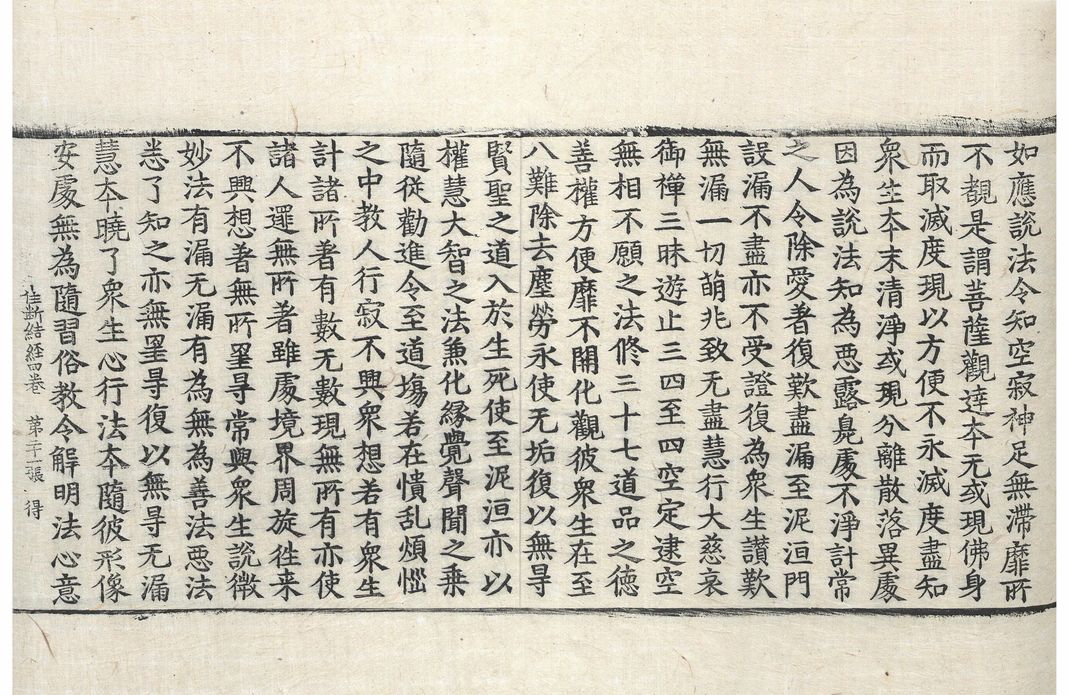 如應說法令知空寂神足無滯靡所
不覩是謂菩薩觀達本无或現佛身
而取滅度現以方便不永滅度盡知
衆生本末清淨或現分離散落異處
因為說法知為惡露臭處不淨計常
之人令除愛著復歎盡漏至泥洹門
設漏不盡亦不受證復為衆生讃歎
無漏一切萌兆致无盡慧行大慈哀
御禪三昧遊止三四至四空定逮空
無相不願之法修三十七道品之德
善權方便靡不開化觀彼衆生在至
八難除去塵勞永使无垢復以無㝵
賢聖之道入於生死使至泥洹亦以
權慧大智之法兼化緣覺聲聞之乗
隨從勸進令至道場若在憒乱煩惱
之中教人行寂不興衆想若有衆生
計諸所著有數无數現無所有亦使
諸人還無所著雖處境界周旋徃来
不興想著無所罣㝵常與衆生說微
妙法有漏无漏有為無為善法惡法
悉了知之亦無罣㝵復以無㝵无漏
慧本曉了衆生心行法本隨彼形像
安處無為隨習俗教令解明法心意
住斷結経四卷　第二十一張　得